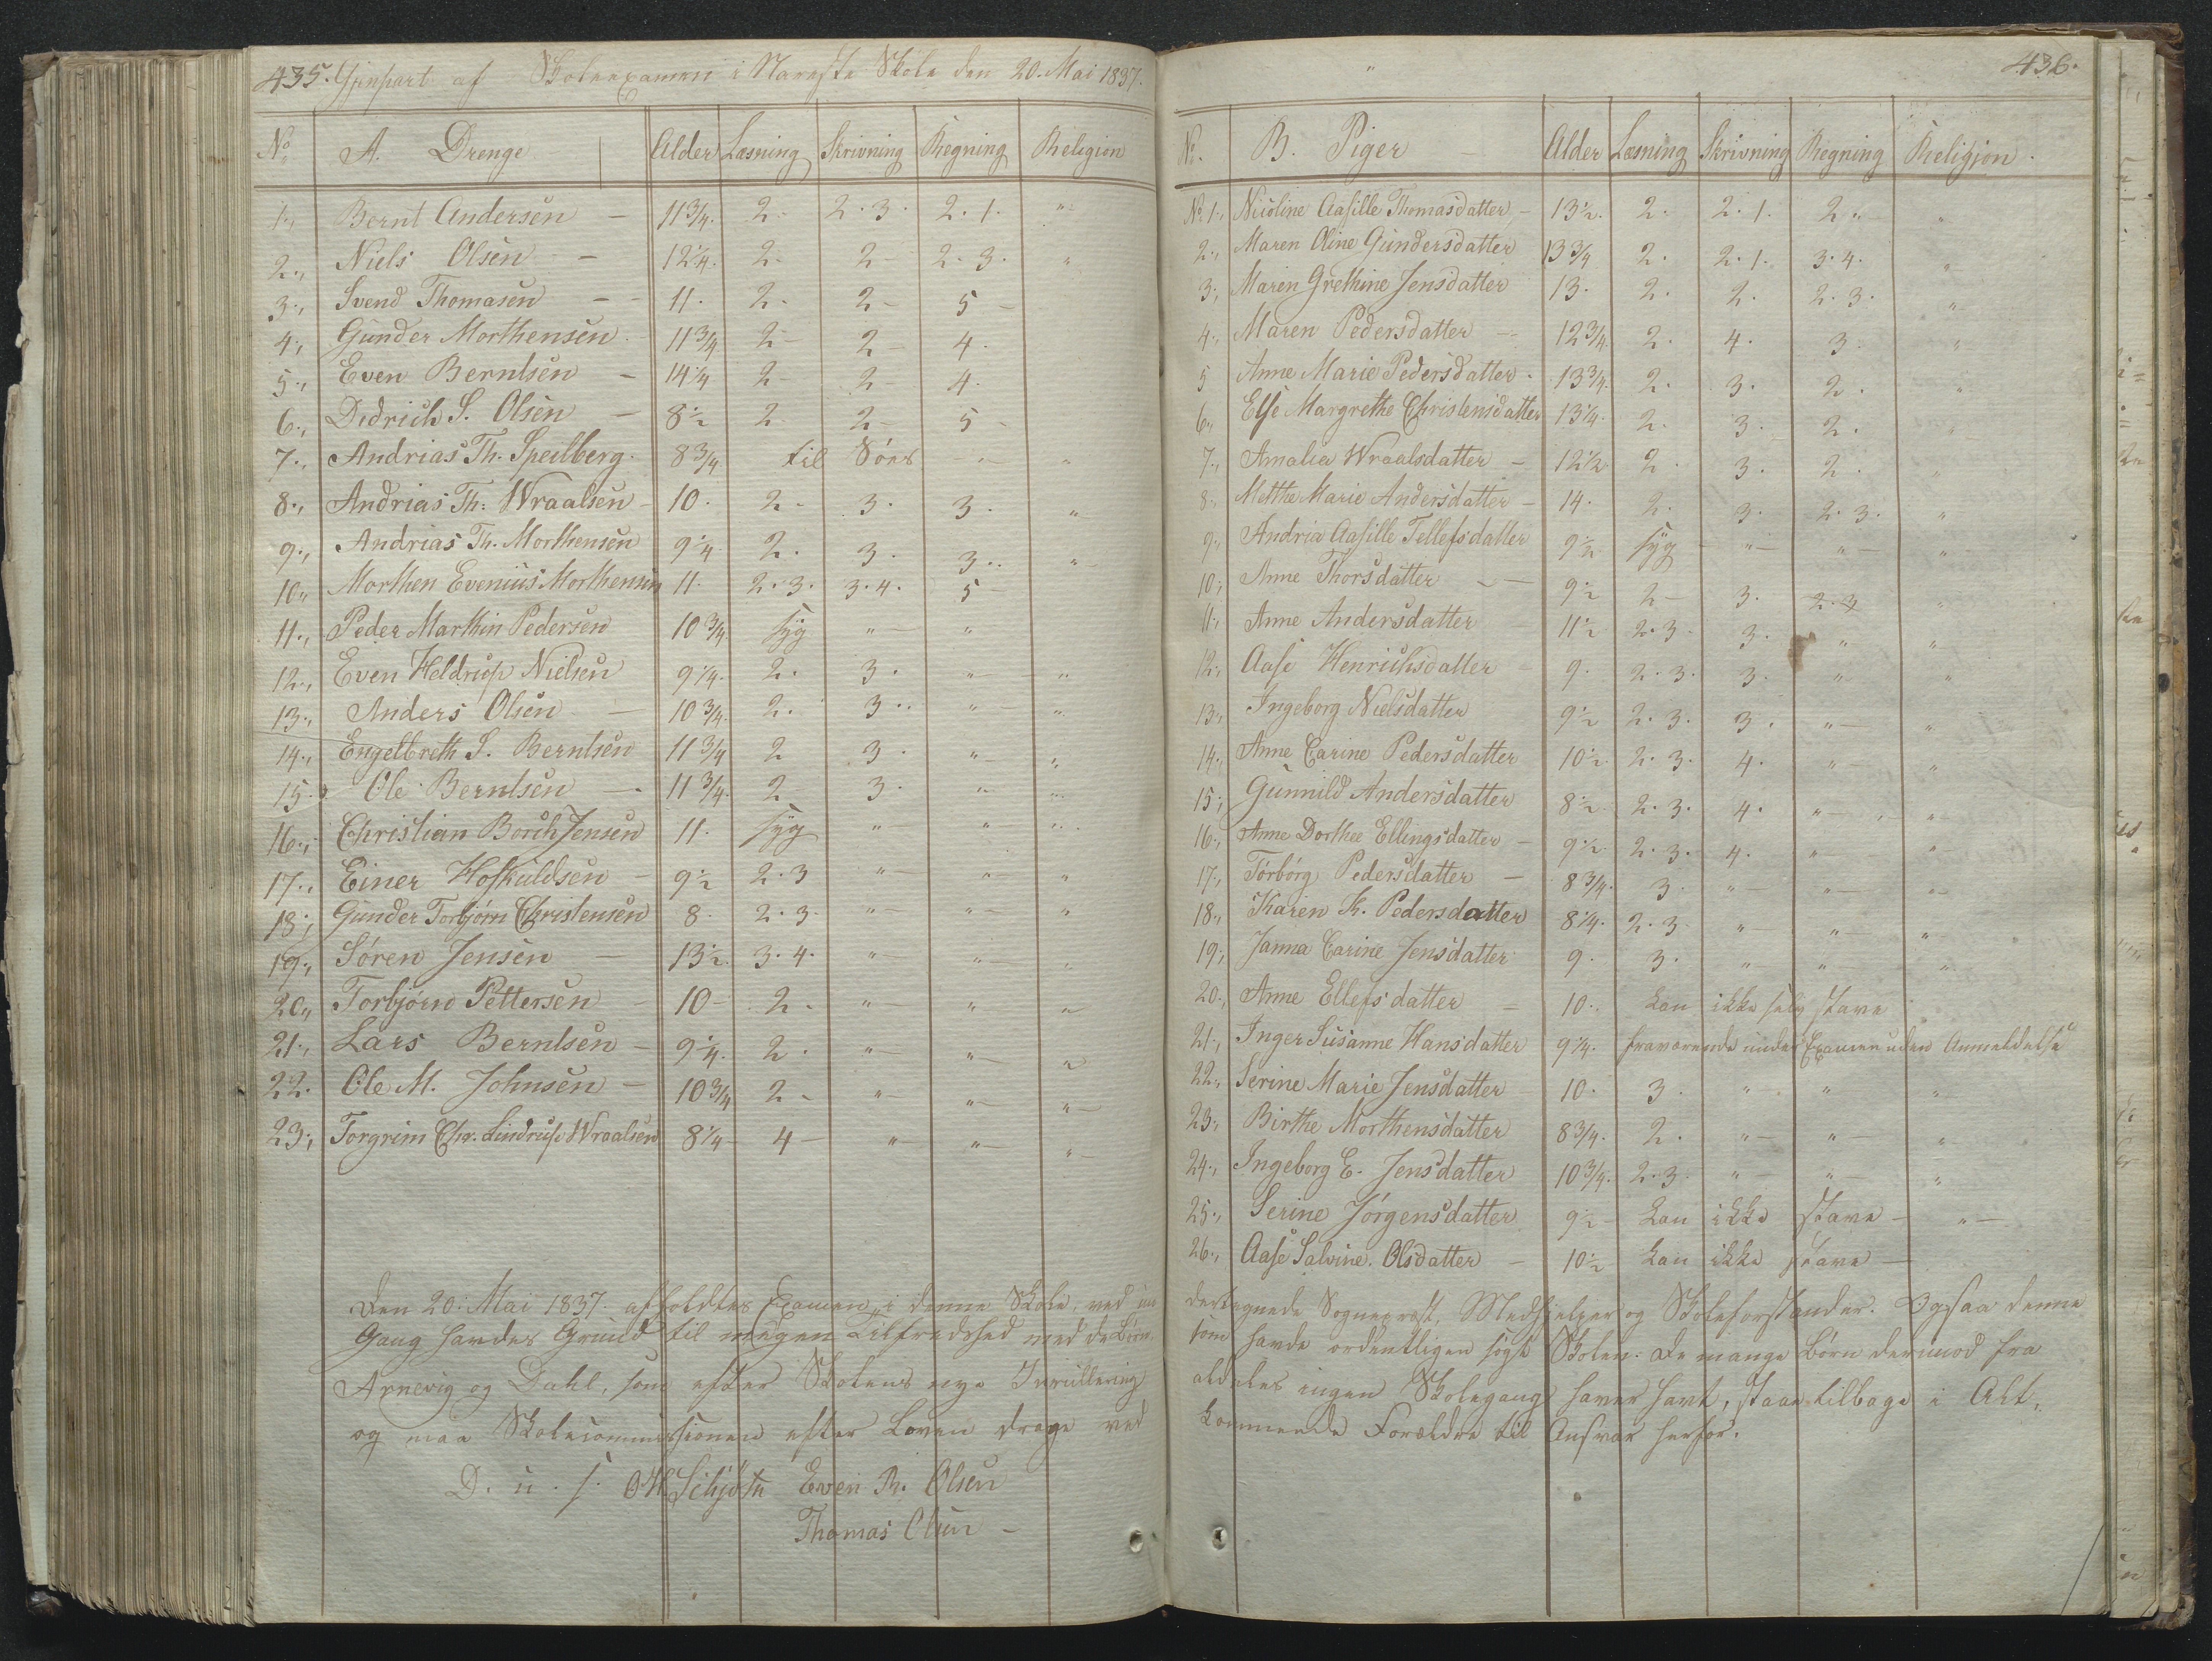 435. Gjenpart af Skoleexamen i Narestø Skole den 20. Mai 1837.
No A. Drenge Alder Læsning Skrivning Regning Religion
1., Bernt Andersen – 11 3/4. 2. 2.3. 2.1. "
2., Niels Olsen – 12 1/4. 2. 2 – 2.3. "
3., Svend Thomasen – 11. 2. 2 – 5 –
4., Gunder Morthensen. 11 3/4 2 – 2 – 4.
5., Even Berntsen – 14 1/4 2 – 2 4.
6., Didrich S. Olsen – 8 1/2 2 2 – 5 –
7., Andrias Th. Speilberg. 8 3/4 til Søes – " – "
8., Andrias Th. Wraalsen – 10. 2 – 3. 3. "
9., Andrias Th. Morthensen 9 1/4 2. 3. 3.. "
10., Morthen Evenius Morthensen 11. 2.3. 3.4. 5 –
11., Peder Marthin Pedersen 10 3/4 syg " – "
12., Even Heldrup Nielsen 9 1/4. 2. 3. " – "
13., Anders Olsen – 10 3/4. 2. 3.. " – "
14., Engelbreth S. Berntsen 11 3/4 2 3. " – "
15., Ole Berntsen – 11 3/4. 2 3. " "
16., Christian Borch Jensen 11. syg " – " "
17., Einer Hofkuldsen – 9 1/2 2.3 " – " – "
18., Gunder Torbjørn Christensen 8. 2.3. " " – "
19., Søren Jensen – 13 1/2. 3.4. " – " – "
20., Torbjørn Pettersen – 10 – 2 – " – " "
21., Lars Berntsen – 9 1/4. 2. " " – "
22. Ole M. Johnsen – 10 3/4 2 – " – " – " –
23., Torgrim Chr. Lindrup Wraalsen 8 1/4 – 4 – " " – " –
436.
No. B. Piger – Alder Læsning Skrivning Regning Religion.
No. 1., Nicoline Aasille Thomasdatter – 13 1/2. 2. 2.1. 2 " "
2., Maren Oline Gundersdatter 13 3/4 2. 2.1. 3.4. "
3., Maren Grethine Jensdatter 13. 2. 2. 2.3. "
4., Maren Pedersdatter – 12 3/4. 2. 4. 3. "
5 Anne Marie Pedersdatter. 13 3/4. 2. 3. 2. "
6., Else Margrethe Christensdatter 13 1/4. 2. 3. 2. "
7., Amalia Wraalsdatter – 12 1/2 2. 3. 2. "
8., Metthe Marie Andersdatter – 14. 2. 3. 2.3. "
9., Andria Aasille Tellefsdatter 9 1/2 syg – " – " – "
10., Anne Thorsdatter – 9 1/2 2 – 3. 2.3 "
11., Anne Andersdatter – 11 1/2 2.3. 3. " "
12., Aase Henrichsdatter – 9. 2.3. 3. " "
13., Ingeborg Nielsdatter 9 1/2 2.3. 3. " – "
14., Anne Carine Pedersdatter 10 1/2. 2.3. 4. " – "
15., Gunnild Andersdatter 8 1/2. 2.3. 4. " – "
16., Anne Dorthee Ellingsdatter – 9 1/2. 2.3. 4. " – " –
17., Torborg Pedersdatter – 8 3/4. 3. " – " – " –
18., Karen K. Pedersdatter 8 1/4. 2.3 " – " – " –
19., Janna Carine Jensdatter 9. 3. " – " – "
20., Anne Ellefsdatter – 10. kan ikke selv stave
21., Inger Susanne Hansdatter 9 1/4. fraværende under Examen uden Anmeldelse
22., Serine Marie Jensdatter – 10. 3. " " "
23., Birthe Morthensdatter 8 3/4. 2. " – " – "
24., Ingeborg E. Jensdatter 10 3/4. 2.3. " – " – "
25., Serine Jørgensdatter 9 1/2 – kan ikke stave – " –
26., Aase Salvine Olsdatter – 10 1/2 kan ikke stave –
Den 20. Mai 1837. afholdtes Examen i denne Skole, ved un
dertegnede Sognepræst, Medhjelper og Skoleforstander. Ogsaa denne
Gang havdes Grund til megen Tilfredshed med de Børn,
som havde ordentligen søgt Skolen: De mange Børn derimod fra
Arnevig og Dahl, som efter Skolens nye Inrullering
aldeles ingen Skolegang haver havt, staae tilbage i Alt,
og maa Skolecommissionen efter Loven drage ved
kommende Forældre til Ansvar herfor.
D. u. s. Schjøtz Even R. Olsen
Thomas Olsen –